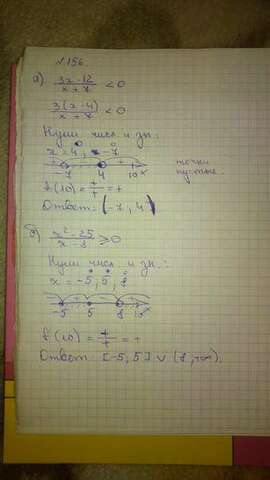 №156
а) 3x-12 / x+7 < 0
3(x-4) / x+7 < 0
Нули числ и зн:
x = 4, -7
+ - +
-7 4 10 x
точки
пустые
f(10) = + / + = +
Ответ: (-7, 4)
б) x²-25 / x-8 ≥ 0
Нули числ. и зн.:
x = -5, 5, 8
-5 5 8 10 x
f(10) = + / + = +
Ответ: [-5, 5] ∪ (8, +∞).